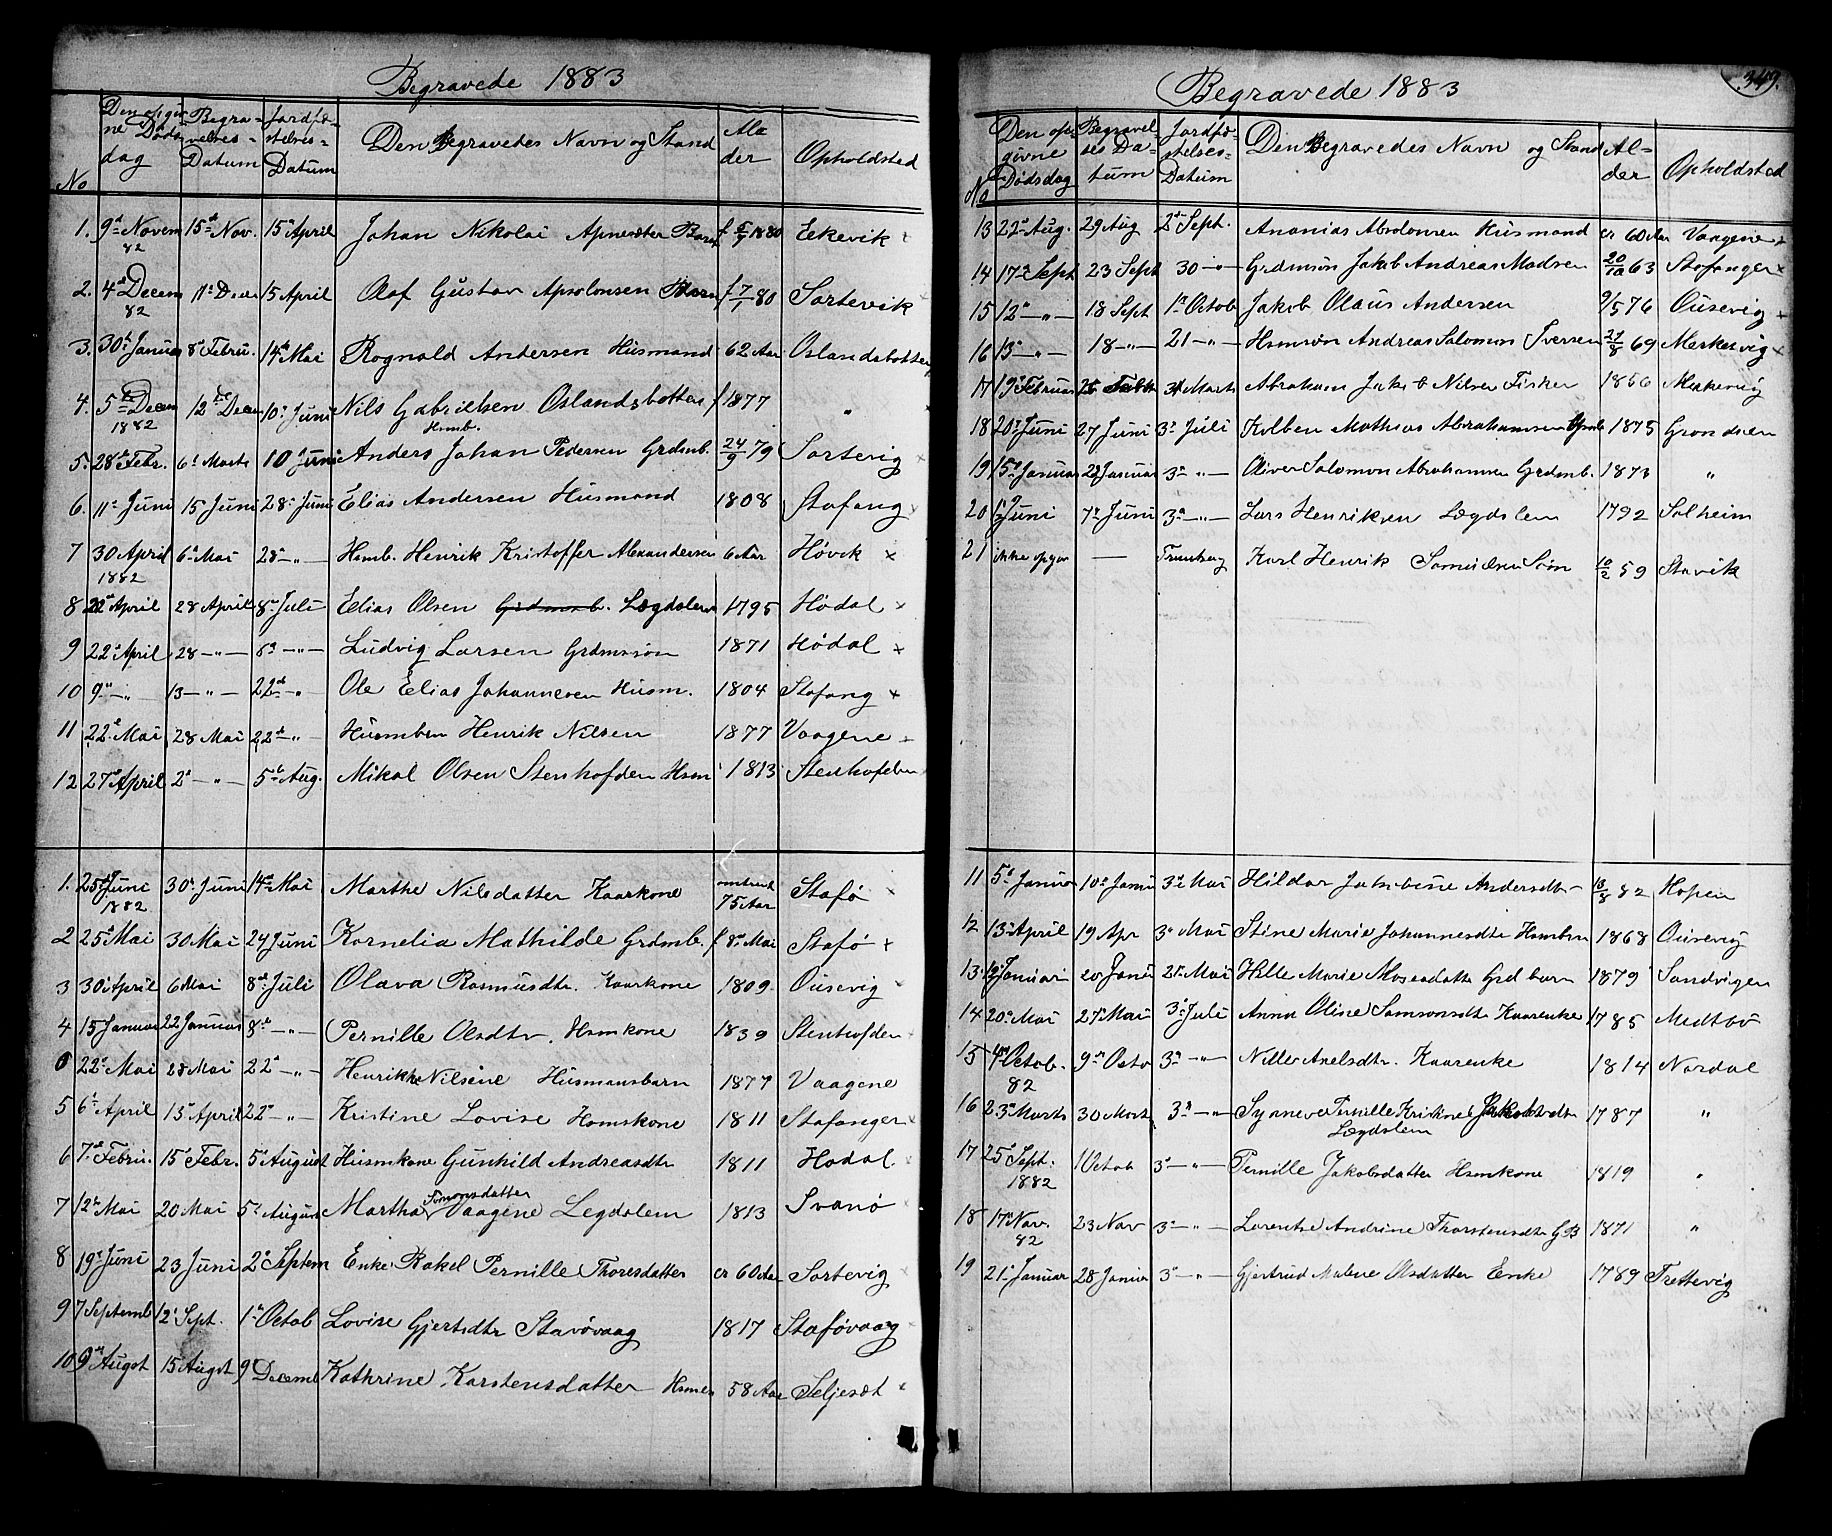 Begravede 1883
No
Den opgivne Dødsdag
Begravelses Datum
Jordfæstelses Datum
Den Begravedes Navn og Stand
Alder
Opholdsted
1. 9de Novem 82 15de Nov. 15de April Johan Nikolai Barn f 1880 Eekevik
2. 4de Decem 82 11te Decr 15 April Olaf Gustav Apsolonsen Barn f 7/7 80 Sortevik
3. 30te Januar 8de Febru. 14de Mai Rognald Andersen Husmand 62 Aar Oslandsbotten
4. 5te Decem 1882 12te Decem 10de Juni Nils Gabrielsen Oslandsbotten Hsmb. f 1877 "
5. 28de Febr. 6te Marts 10de Juni Anders Johan Pedersen Grdmb. 24/9 79 Sortevig
6. 11te Juni 15 Juni 28 Juni Elias Andersen Husmand 1808 Stafang
7 30 April 1882 6te Mai 28de -"- Hsmb. Henrik Kristoffer Alexandersen 6 Aar Høvik
8 22de April 28 April 8de Juli Elias Olsen Grdmb. Lægdslem 1795 Hødal
9 22de April 28 -"- 8de -"- Ludvig Larsen Grdmssøn 1871 Hødal
10 9de -"- 13 -"- 22de -"- Ole Elias Johannesen Husm. 1804 Stafang
11 22de Mai 28 Mai 22de -"- Husmbrn Henrik Nilsen 1877 Vaagene
12 27de April 2de -"- 5te Aug. Mikal Olsen Stenhofden Hsm 1813 Stenhofden
1. 25de Juni 1882 30te Juni 14de Mai Marthe Nilsdatter Kaarkone omtrent 75 Aar Stafø
2 25de Mai 30 Mai 24 Juni Kornelia Mathilde Grdmb. f 8de Mai Stafø
3 30 April 6 Mai 8de Juli Olava Rasmusdtr. Kaarkone 1809 Ousevig
4 15 Januar 22 Januar 8de -"- Pernille Olsdtr. Hsmkone 1839 Stenhofden
22de Mai 28 Mai 22de -"- Henrikke Nilsine Husmansbarn 1877 Vaagene
5 6te April 13de April 22de -"- Kristine Lovise Hsmskone 1811 Stafanger
6 7de Febru. 15 Febr. 5te August Husmkone Gunhild Andreasdtr 1811 Hodal
7 12te Mai 20 Mai 5te August Martha Simonsdatter Vaagene Legdslem 1813 Svanø
8 19de Juni 23 Juni 2den Septem Enke Rakel Pernille Thoresdatter cr 60 Aar Sortevig
9 7 Septemb 12te Sept. 1te Octob Lovise Gjertsdtr Stavøvaag 1817 Staføvaag
10 9de Augst 15 Augst 9de Decemb Kathrine Karstensdatter 58 Aar Seljesæt
Begravede 1883
349.
No
Den opgivne Dødsdag
Begravelses Datum
Jordfæstelses Datum
Den Begravedes Navn og Stand
Alder
Opholdsted
13 22de Aug. 29 Aug 2den Sept. Ananias Absolonsen Husmand cr 60 Aar Vaagene
14 17de Sept 23 Sept 30 -"- Grdmsøn Jakob Andreas Madsen 20/10 63 Stofanger
15 12te -"- 18 Sept 1te Octob Jakob Olaus Andersen 9/5 76 Ousevig
16 13de -"- 18 -"- 21 -"- Hsmsøn Andreas Salomon Iversen 27/8 69 Merkesvig
17 19de Februar 25 Febr 31 Marts Abraham Jakob Nilsen Fisker 1856
18 20de Juni 27 Juni 3de Juli Kolben Mathias Abrahamsen Grmb 1875 Grondsen
19 15de Januar 22 Januar 3de -"- Oliver Salomon Abrahamsen Grdmb. 1873 "
20 1te Juni 7de Juni 3de -"- Lars Henriksen Lægdslem 1792 Solheim
21 ikke opgiv — Karl Henrik Samuelsen Søn 10/2 59 Stavik
11 5te Januar 10de Janu 3de Mai Hildar Jakobine Andersdtr 13/8 82 Hopen
12 13de April 19 Apr 3de Mai Stine Marie Johannesdtr Hsmbrn 1868 Ousevig
13 Januar 20de Janu 21de Mai Hille Marie Mosesdatter Grd barn 1879 Sandvigen
14 20de Mai 27de Mai 3de Juli Anna Olise Samsonsdtr Kaarenke 1785 Medtbø
15 4de Octob. 82 9de Octo 3de -"- Nille Axelsdtr. Kaarenke 1814 Nordal
16 23de Marts 30 Mart 3de -"- Synneve Pernille Kristine Jakobsdtr Lægdslem 1787 "
17 25de Sept. 1882 1 Octob 3de -"- Pernille Jakobsdatter Hsmkone 1819 "
18 17de Nov. 82 23 Nov 3de -"- Lorentse Andrine Thorstensdtr GB 1871 "
19 21de Januar 28 Januar 3de -"- Gjertrud Malene Olsdatter Enke 1789 Trettevig